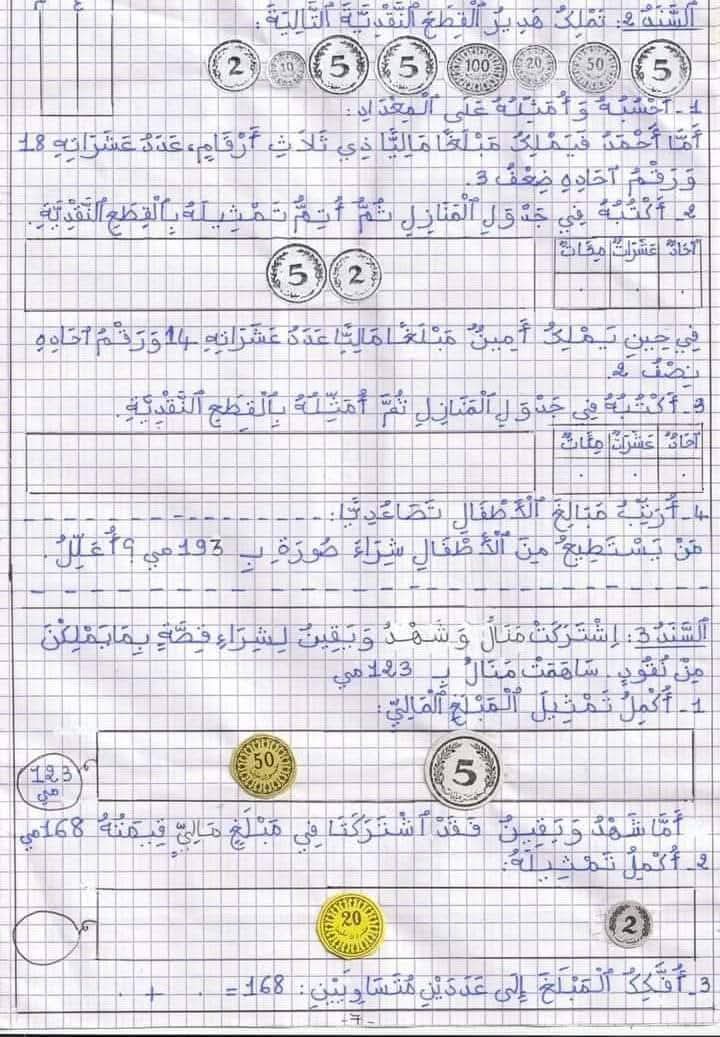 م ع
السَّنَدُ 2: تَمْلِكُ هَدِيرُ الْقِطَعَ النَّقْدِيَّةَ التَّالِيَةَ:
2 10 5 5 100 20 50 5
1- أَحْسُبُهُ وَ أُمَثِّلُهُ عَلَى الْمِعْدَادِ:
أَمَّا أَحْمَدُ فَيَمْلِكُ مَبْلَغًا مَالِيًّا ذِي ثَلَاثِ أَرْقَامٍ، عَدَدُ عَشَرَاتِهِ 18
وَ رَقْمُ آحَادِهِ ضِعْفُ 3.
2- أَكْتُبُهُ فِي جَدْوَلِ الْمَنَازِلِ ثُمَّ أُتِمُّ تَمْثِيلَهُ بِالْقِطَعِ النَّقْدِيَّةِ.
آحَادٌ عَشَرَاتٌ مِئَاتٌ
. . .
5 2
فِي حِينِ يَمْلِكُ أَمِينُ مَبْلَغًا مَالِيًّا عَدَدُ عَشَرَاتِهِ 14 وَ رَقْمُ آحَادِهِ
نِصْفُ 2.
3- أَكْتُبُهُ فِي جَدْوَلِ الْمَنَازِلِ ثُمَّ أُمَثِّلُهُ بِالْقِطَعِ النَّقْدِيَّةِ.
آحَادٌ عَشَرَاتٌ مِئَاتٌ
. . .
4- أُرَتِّبُ مَبَالِغَ الْأَطْفَالِ تَصَاعُدِيًّا: -----------------
مَنْ يَسْتَطِيعُ مِنَ الْأَطْفَالِ شِرَاءَ صُورَةِ بِـ 193 مي ؟ أُعَلِّلُ.
- - - - - - - - - - - - - - - - - - - -
السَّنَدُ 3: اِشْتَرَكَتْ مَنَالُ وَ شَهْدُ وَ يَقِينُ لِشِرَاءِ قِصَّةٍ بِمَا يَمْلِكْنَ
مِنْ نُقُودٍ. سَاهَمَتْ مَنَالُ بِـ 123 مي
1- أُكْمِلُ تَمْثِيلَ الْمَبْلَغِ الْمَالِيِّ:
50 5
123
مي
أَمَّا شَهْدُ وَ يَقِينُ فَقَدْ اشْتَرَكَتَا فِي مَبْلَغٍ مَالِيٍّ قِيمَتُهُ 168 مي
2- أُكْمِلُ تَمْثِيلَهُ:
20 2
3- أُفَكِّكُ الْمَبْلَغَ إِلَى عَدَدَيْنِ مُتَسَاوِيَيْنِ: 168 = . + .
-7-